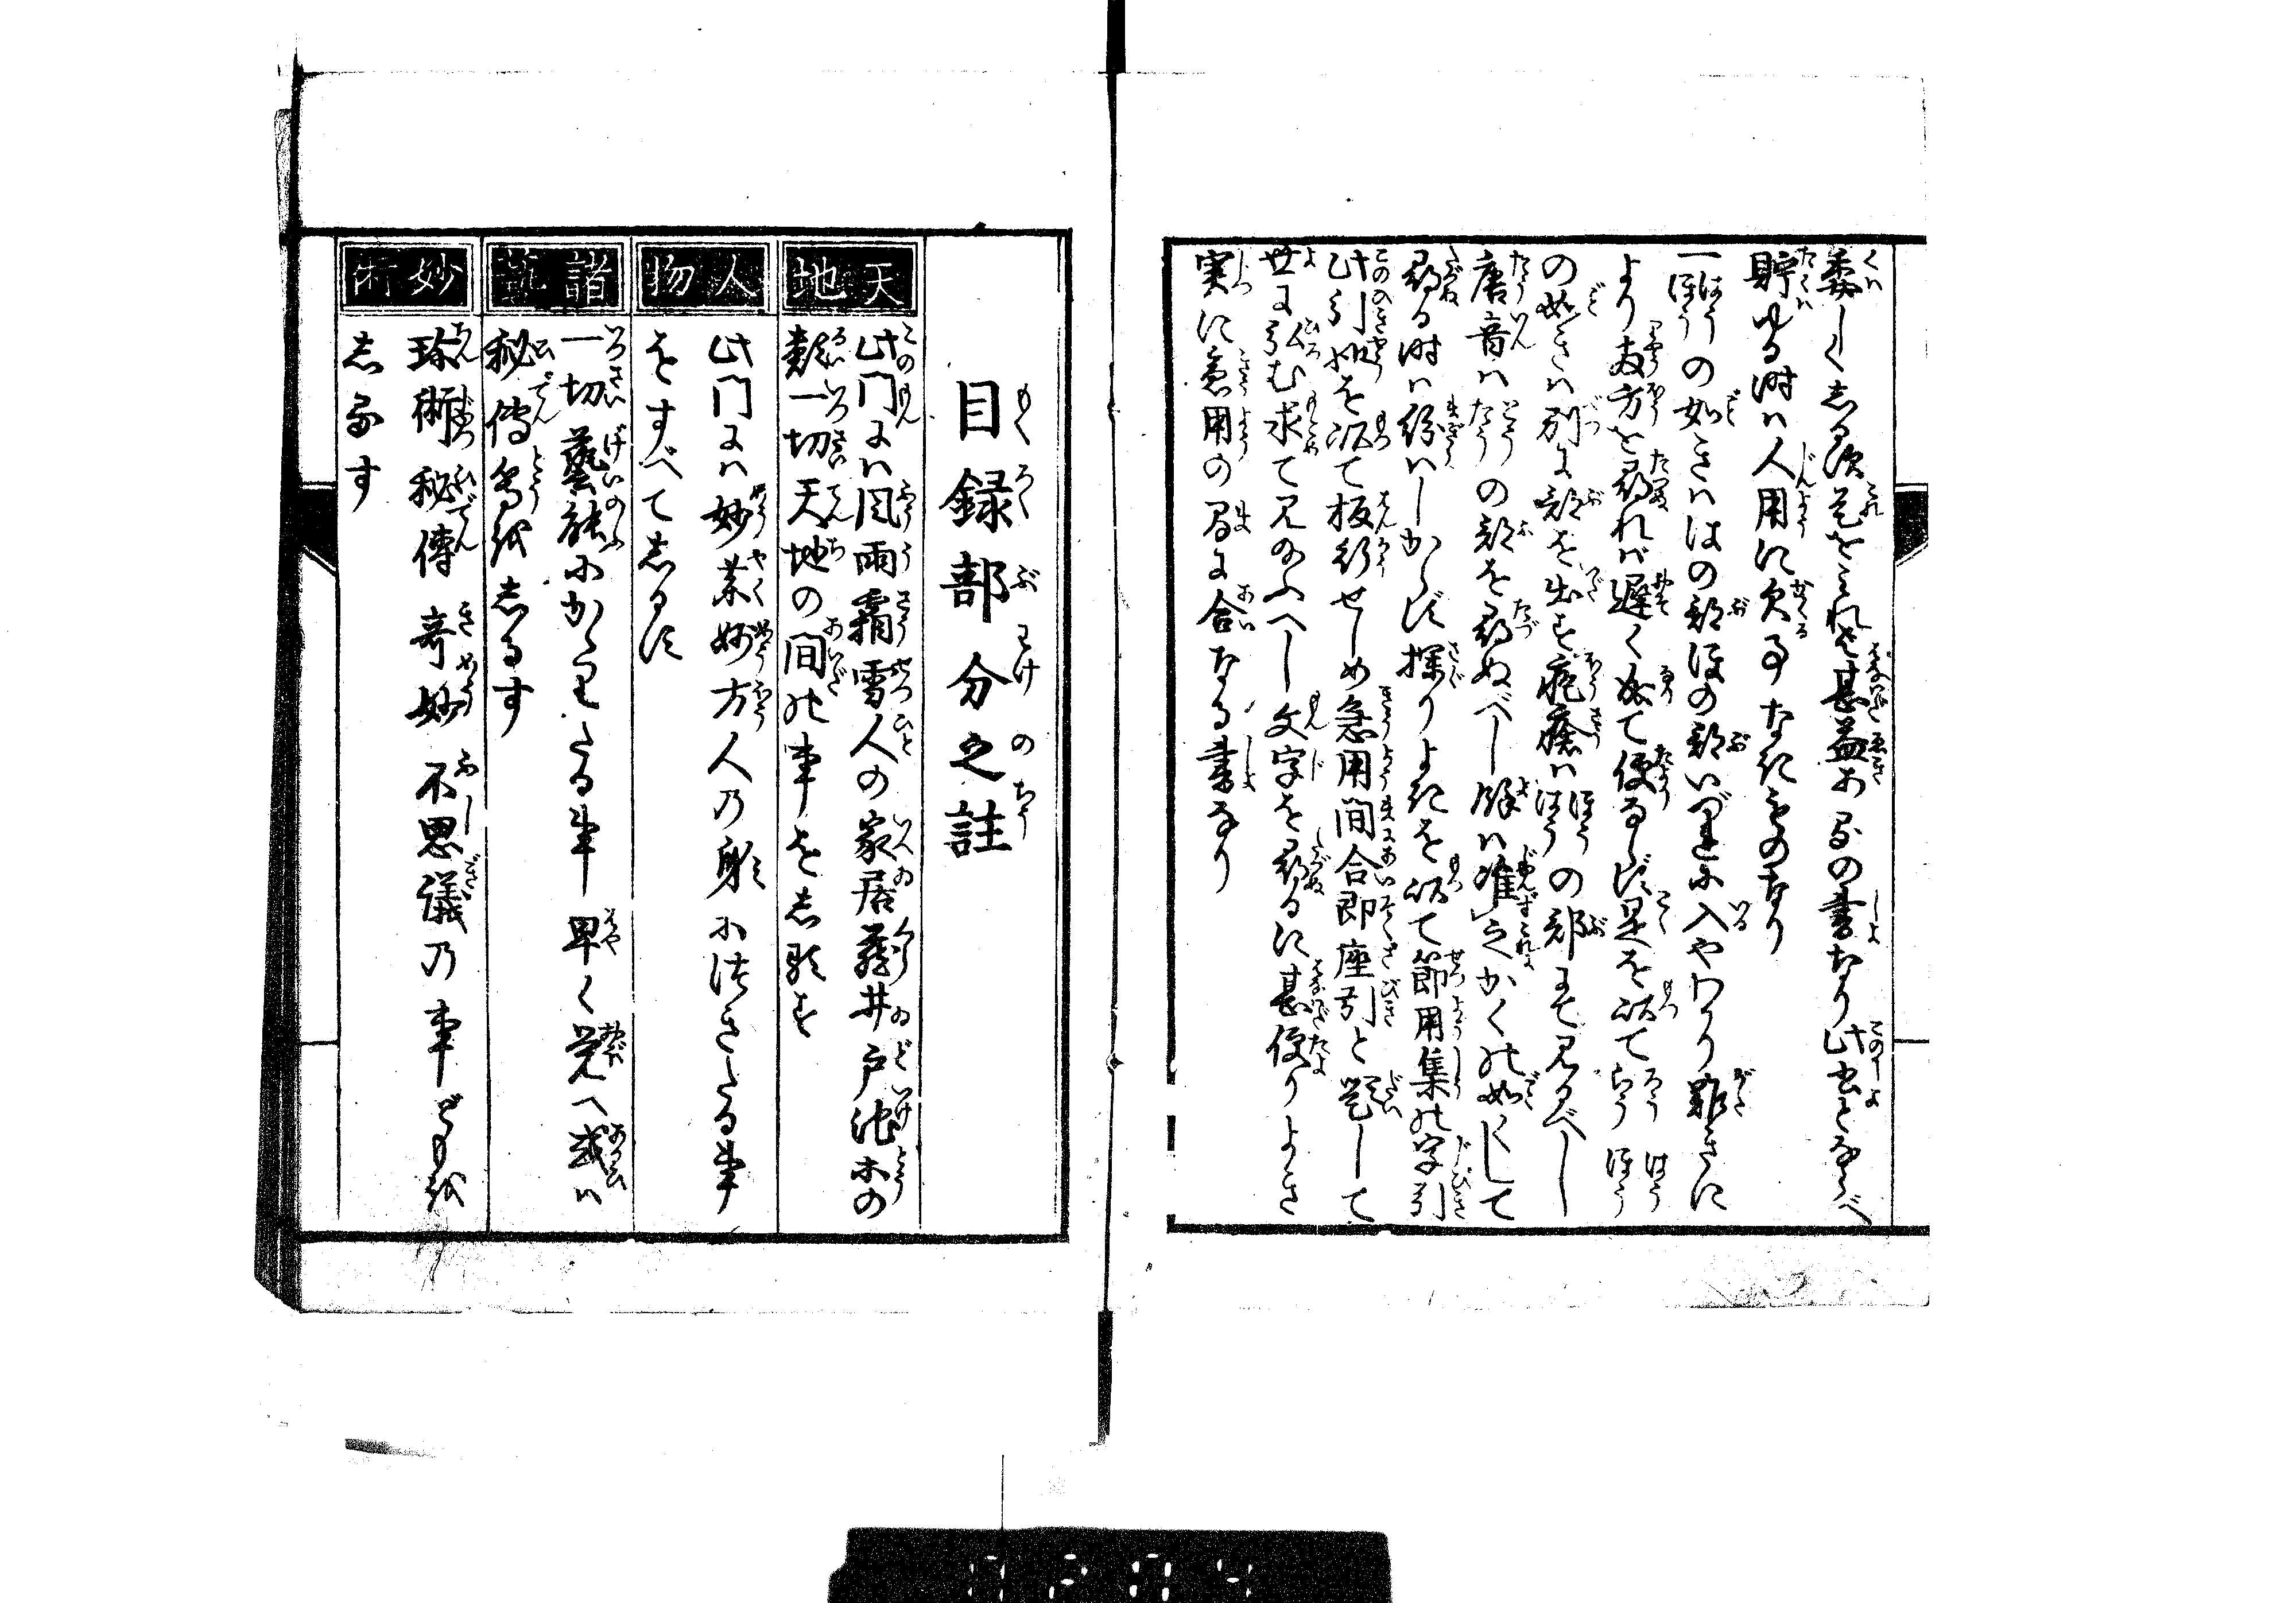 委しくしるす是をみれば甚益ある の書なり此書となへ
貯ゆる時ハ人用に欠る事なきものなり
一はうほうの如きハはの部ほの部いづれに入やわかり難きに
より両方を尋れバ遅く成て便ならず是を以てらうろうはうほう
の如きハ別に部を出す疱瘡ハはうほうの部にて見るべし
唐音ハたうとうの部を尋ぬべし餘ハ准之かくの如くして
尋る時ハ紛ハしからず探りよきを以て節用集の字引
此引やうを以て板行せしめ急用間合即座引と題して
世に弘む求て見給ふへし文字を尋るに甚便りよき
実に急用の間に合なる書なり
目録部分之註
天地
此門にハ風雨霜雪人の家居藪井戸池等の
類一切天地の間の事をしるす
人物
此門にハ妙薬妙方人の身に付きたる事
をすべてしるす
諸芸
一切藝能にかゝりたる事早く覚へ或ハ
秘傳等をしるす
妙術
珍術秘傳奇妙不思議の事どもを
しるす